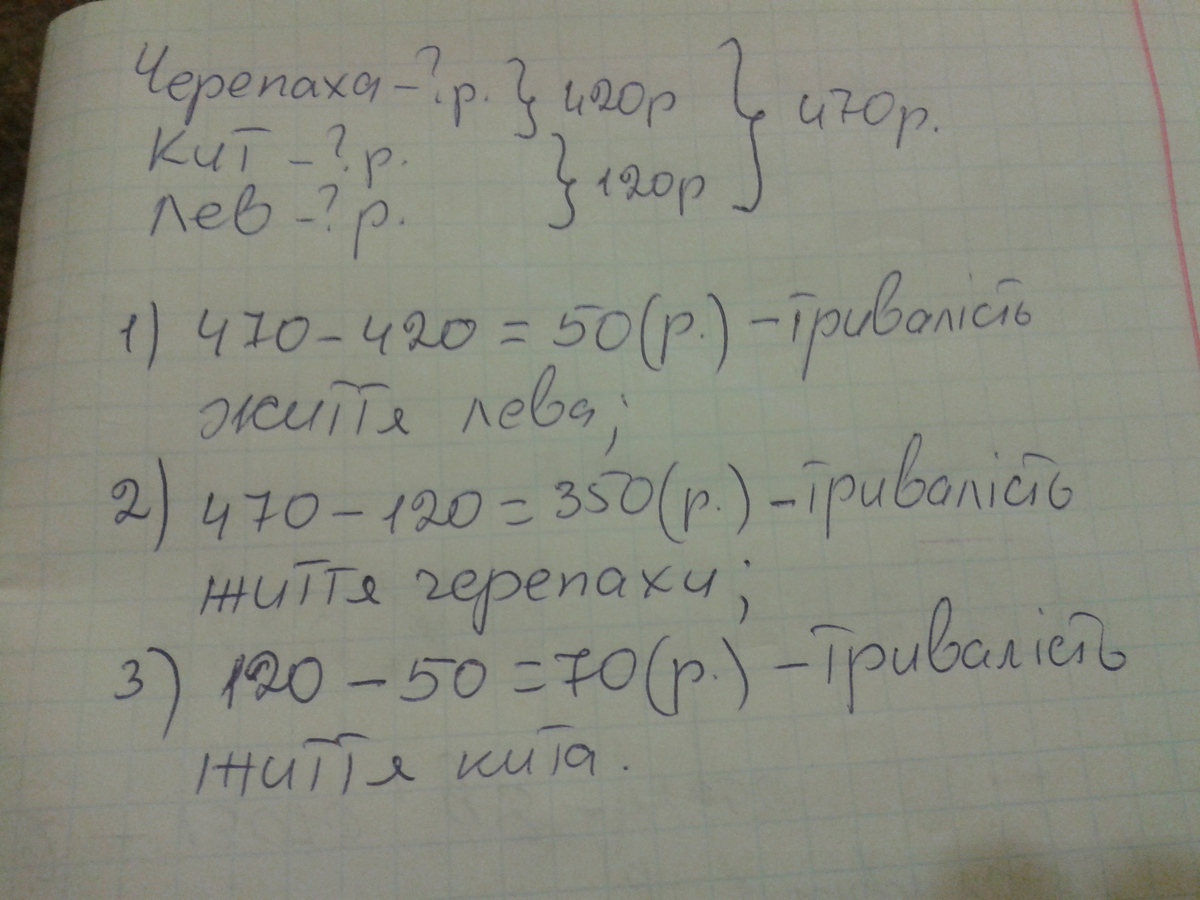 Черепаха - ? р. } 420р } 470р.
Кит - ? р.
Лев - ? р. } 120р
1) 470 - 420 = 50 (р.) - тривалість
життя лева;
2) 470 - 120 = 350 (р.) - тривалість
життя черепахи;
3) 120 - 50 = 70 (р.) - тривалість
життя кита.